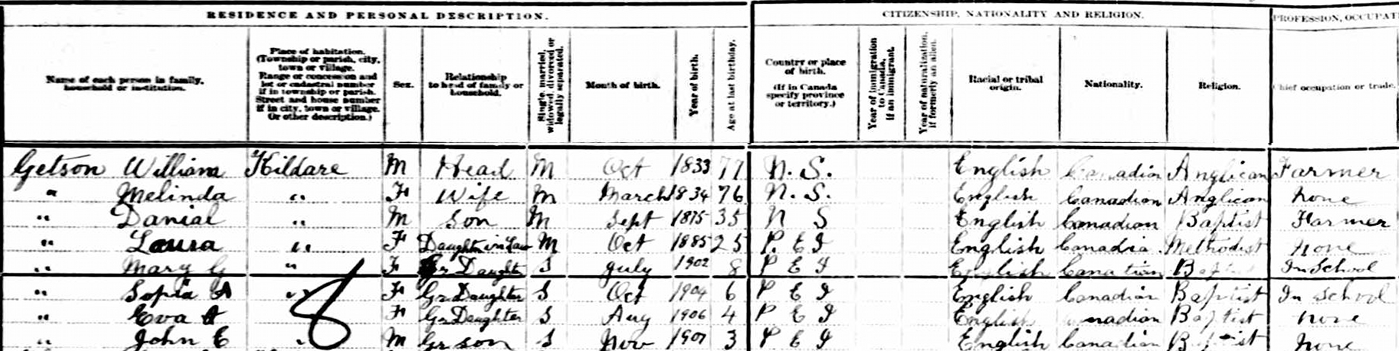 RESIDENCE AND PERSONAL DESCRIPTION.
CITIZENSHIP, NATIONALITY AND RELIGION.
PROFESSION, OCCUPAT
Name of each person in family, household or institution.
Place of habitation. (Township or parish, city, town or village. Range or concession and lot or cadastral number if in township or parish. Street and house number if in city, town or village. Or other description.)
Sex.
Relationship to head of family or household.
Single, married, widowed, divorced or legally separated.
Month of birth.
Year of birth.
Age at last birthday.
Country or place of birth. (If in Canada specify province or territory.)
Year of immigration to Canada, if an immigrant.
Year of naturalization, if formerly an alien.
Racial or tribal origin.
Nationality.
Religion.
Chief occupation or trade.
Getson William Kildare M Head M Oct 1833 77 N. S. English Canadian Anglican Farmer
" Melinda " F Wife M March 1834 76 N. S. English Canadian Anglican none
" Danial " M Son M Sept 1875 35 N S English Canadian Baptist Farmer
" Laura " F Daughter in Law M Oct 1885 25 P. E I English Canadia Methodist none
" Mary G " F Gr Daughter S July 1902 8 P E I English In School
" Sopia A " F Gr Daughter S Oct 1904 6 P E I English Canadian Baptist In School
" Eva A " F Gr Daughter S Aug 1906 4 P E I English Canadian Baptist none
" John E M Gr son S Nov 1907 3 P E I English Canadian Baptist none
8